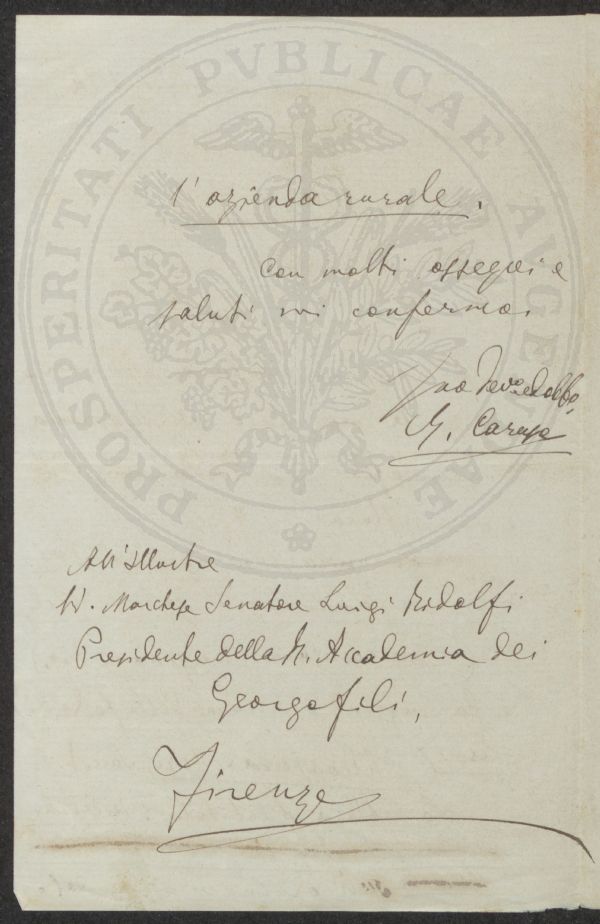 PROSPERITATI PVBLICAE AVGENDAE
l'azienda rurale.
Con molti ossequi e
saluti mi confermo.
Suo Dev.º ed obbº
G. Caruso
All'Illustre
Sr. Marchese Senatore Luigi Ridolfi
Presidente della R. Accademia dei
Georgofili,
Firenze